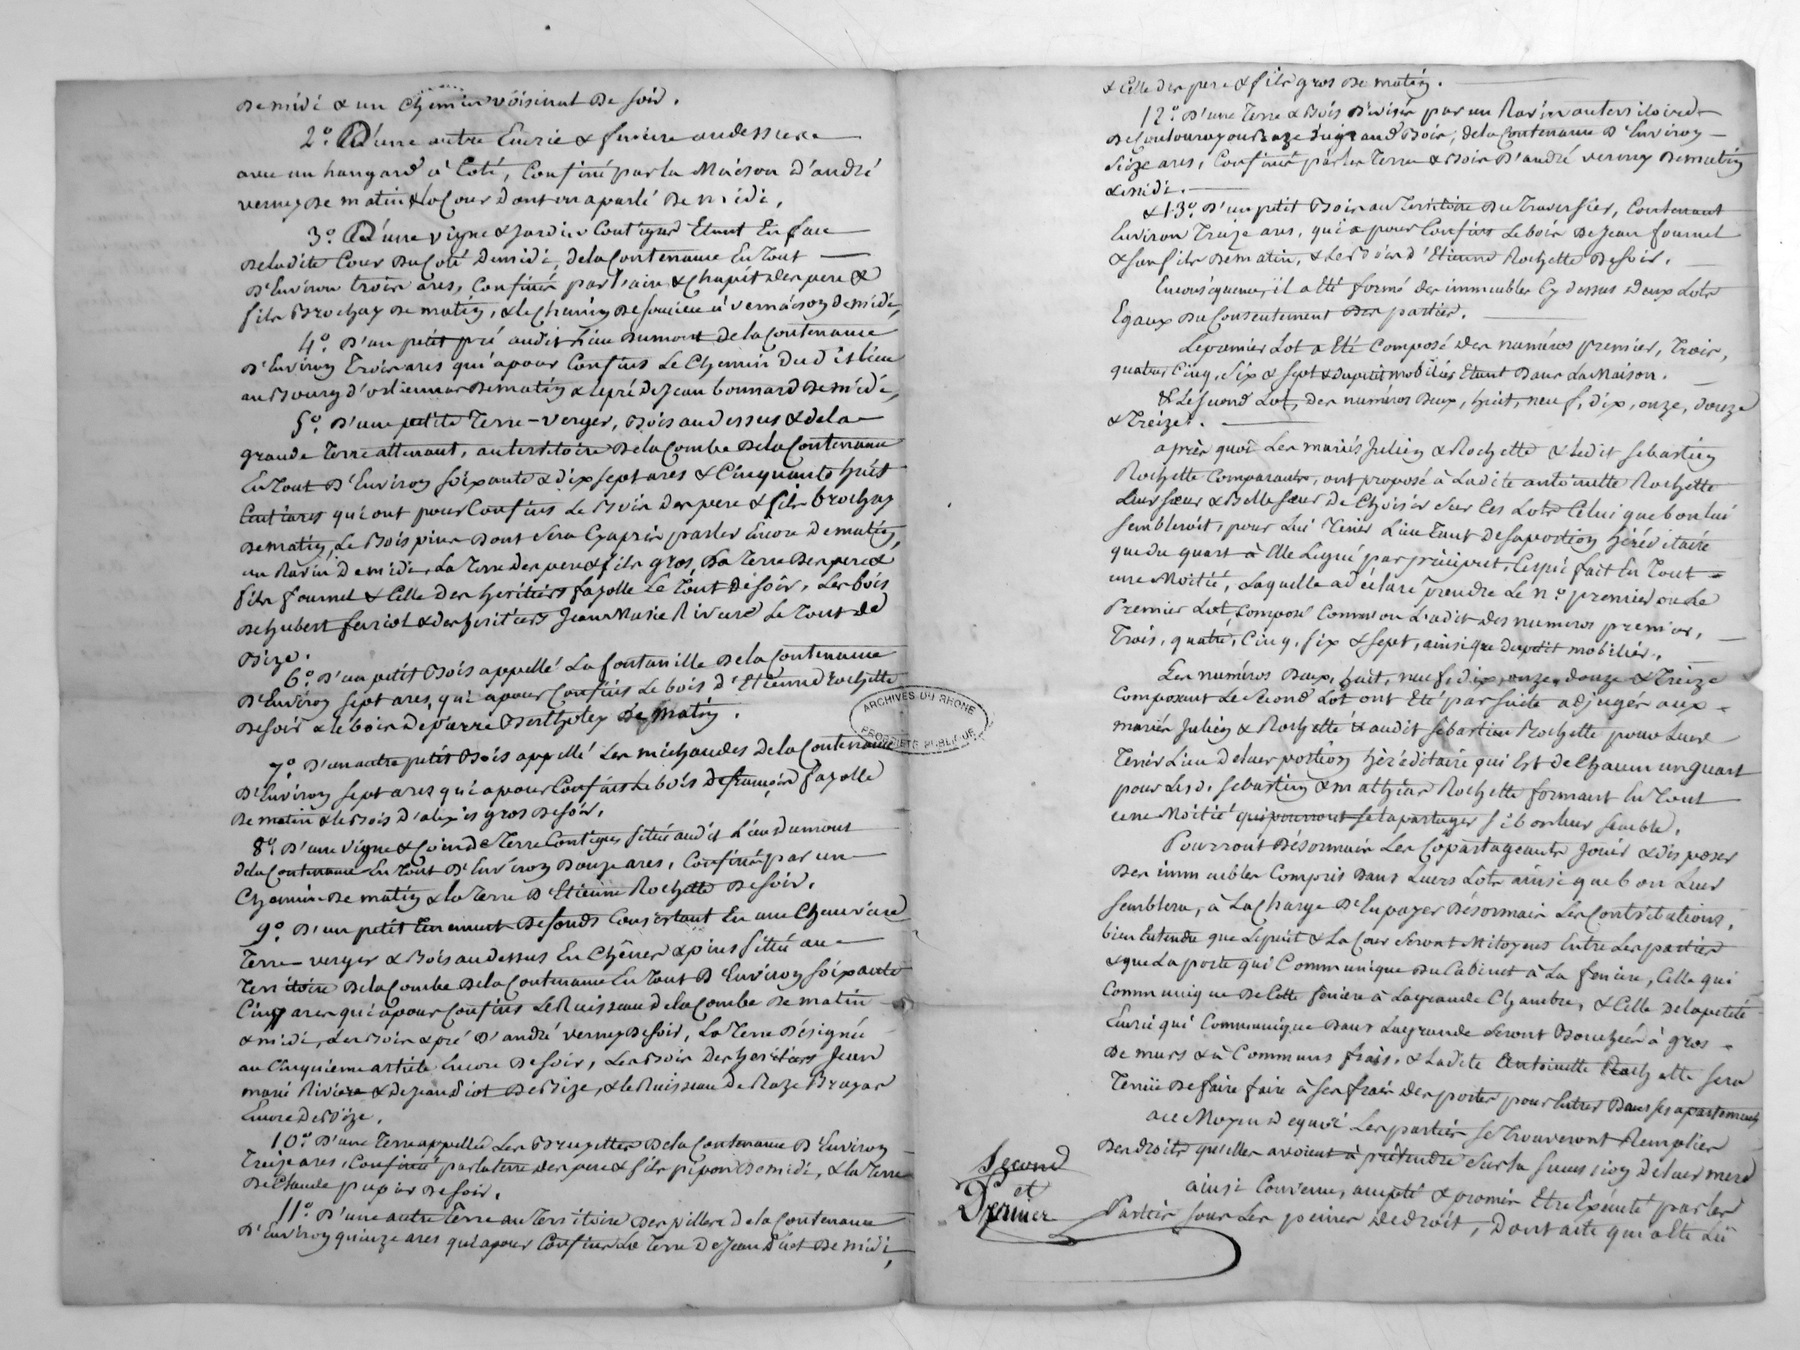 de midi & un chemin voisinal de soir.
2.° D'une autre Ecurie & feniere au dessus —
avec un hangard à Coté, Confiné par la Maison d'andré
verney de matin & la Cour dont on a parlé de midi,
3.° D'une vigne & Jardin Contigus Etant En face
de ladite Cour du Coté de midi, de la Contenance En Tout —
D'Environ trois ares, Confinés par l'aire & Chapit des pere &
fils Brochay de matin, & le Chemin de soucieu à vernaison de midi,
4.° D'un petit pré audit Lieu Dumont de la Contenance
D'Environ Trois ares qui a pour Confins Le Chemin dudit lieu
au Bourg d'orliennas de matin & le pré de Jean bonnard de midi,
5.° D'une petite Terre-verger, Bois au dessus & de la
grande Terre attenant, au territoire de la Combe de la Contenance
En Tout D'Environ soixante & dix sept ares & Cinquante huit
Centiares qui ont pour Confins Le Bois des pere & fils brochay
de matin, Le Bois pins dont sera Cy après parler Encore de matin,
un Ravin de midi, La Terre des pere & fils gros, La Terre des pere &
fils fournel & Celle des heritiers fayolle Le Tout de soir, Les bois
de hubert feriol & des heritiers Jean Marie Riviere Le Tout de
Bize.
6.° D'un petit Bois appellé La fontanille de la Contenance
D'Environ sept ares, qui a pour Confins Le bois d'Etienne Rochette
de soir & le bois de pierre Bertholey de matin.
7.° D'un autre petit Bois appellé Les michaudes de la Contenance
D'Environ sept ares qui a pour Confins Le bois de françois fayolle
de matin & le Bois d'alexis gros de soir,
8.° D'une vigne & Coin de Terre Contigus situé audit Lieu Dumont
de la Contenance En Tout D'Environ Douze ares, Confiné par un
Chemin de matin & la Terre D'Etienne Rochette de soir.
9.° D'un petit tenement de fonds Consistant En une Cheneviere
Terre-verger & Bois au dessus En Chênes & pins situé au —
Territoire de la Combe de la Contenance En Tout D'Environ soixante
Cinq ares qui a pour Confins Le Ruisseau de la Combe de matin
& midi, Les Bois & pré D'andré verney de soir, La Terre Désignée
au Cinquieme article Encore de soir, Les Bois des heritiers Jean
marie Riviere & de Jean diot de Bize, & le Ruisseau de Raze Brayar
Encore de Bize.
10.° D'une Terre appellée Les Bruyettes de la Contenance D'Environ
Treize ares, Confinée par la terre des pere & fils pipon de midi, & la Terre
de Claude pupier de soir.
11.° D'une autre Terre au Territoire des pillere de la Contenance
D'Environ quinze ares qui a pour Confins La Terre de Jean Diot de midi,
& Celle des pere & fils gros de matin. —
12.° D'une Terre & Bois Divisés par un Ravin au territoire
de ou Raze du grand Bois, de la Contenance D'Environ —
Seize ares, Confinés par les Terre & Bois D'andré verney de matin
& midi. —
& 13.° D'un petit Bois au Territoire du Traversier, Contenant
Environ Treize ares, qui a pour Confins Le bois de Jean fournel
& son fils de matin, & Les Bois d'Etienne Rochette de soir. —
En conséquence, il a été formé des immeubles Cy dessus Deux Lots
Egaux du Consentement des parties. —
Le premier Lot a Eté Composé des numéros premier, Trois,
quatre, Cinq, Six & Sept & du petit mobilier Etant dans La Maison. —
& Le second Lot, des numéros Deux, huit, neuf, dix, onze, douze
& Treize. —
après quoi Les mariés Julien & Rochette & ledit sebastien
Rochette Comparants, ont proposé à Ladite antoinette Rochette
Leur sœur & Belle sœur de Choisir sur Ces Lots Celui que bon lui
sembleroit, pour Lui Tenir Lieu Tant de sa portion héréditaire
que du quart à Elle Légué par préciput, Ce qui fait En Tout —
une Moitié, Laquelle a déclaré prendre Le n.° premier ou Le
Premier Lot, Composé Comme on L'a dit des numeros premier,
Trois, quatre, Cinq, six & sept, ainsi que du petit mobilier. —
Les numéros Deux, huit, neuf, dix, onze, douze & Treize
Composant Le second Lot ont Eté par suite adjugés aux —
mariés Julien & Rochette & audit sébastien Rochette pour Leur
Tenir Lieu de leur portion héréditaire qui Est de Chacun un quart
pour Lesd. sebastien & mathias Rochette formant En Tout
une Moitié qui pourront se la partager si bon leur semble.
Pourront Désormais Les Copartageants Jouir & disposer
Des immeubles Compris dans Leurs Lots ainsi que bon Leur
semblera, à La Charge D'En payer Désormais Les Contributions,
bien Entendu que Le puit & La Cour seront Mitoyens Entre Les parties
& que La porte qui Communique du Cabinet à La feniere, Celle qui
Communique de Cette feniere à La grande Chambre, & Celle de la petite
Ecurie qui Communique dans La grande seront Bouchées à gros —
de murs & à Communs frais, & Ladite Antoinette Rochette sera
Tenüe de faire faire à ses frais des portes pour Entrer dans ses apartements
au Moyen de quoi Les parties se Trouveront Remplies
Des droits qu'elles avoient à prétendre sur la succession de leur mere
ainsi Convenu, accepté & promis Etre Exécuté par les
Parties sous Les peines de droit, Dont acte qui a Eté Lü
Second
et
Dernier
ARCHIVES DU RHÔNE
PROPRIÉTÉ PUBLIQUE